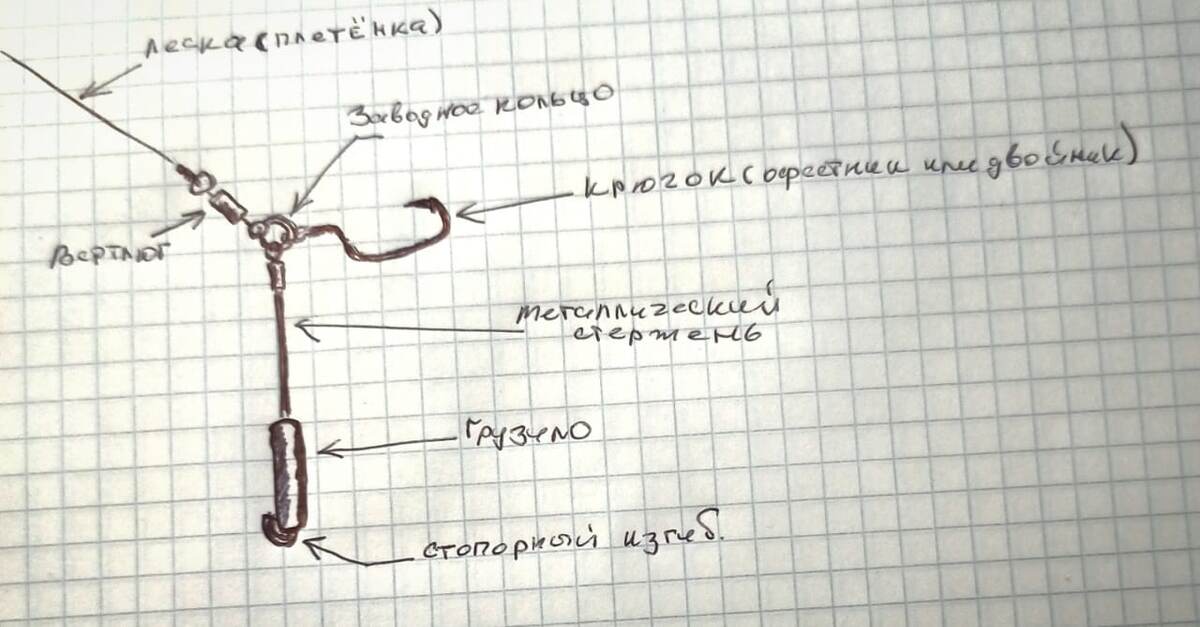 леска (плетёнка)
Заводное кольцо
крючок (офсетник или двойник)
Вертлюг
металлический
стержень
грузило
стопорный изгиб.